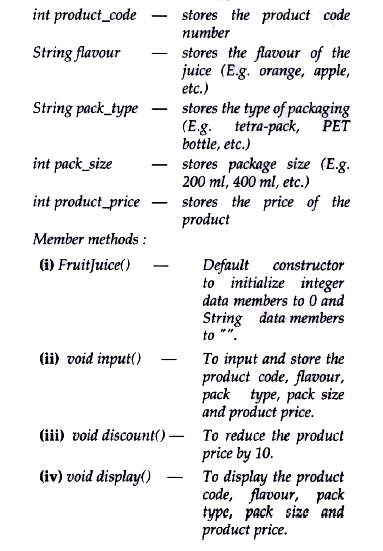 int product_code — stores the product code
number
String flavour — stores the flavour of the
juice (E.g. orange, apple,
etc.)
String pack_type — stores the type of packaging
(E.g. tetra-pack, PET
bottle, etc.)
int pack_size — stores package size (E.g.
200 ml, 400 ml, etc.)
int product_price — stores the price of the
product
Member methods :
(i) FruitJuice() — Default constructor
to initialize integer
data members to 0 and
String data members
to "".
(ii) void input() — To input and store the
product code, flavour,
pack type, pack size
and product price.
(iii) void discount() — To reduce the product
price by 10.
(iv) void display() — To display the product
code, flavour, pack
type, pack size and
product price.